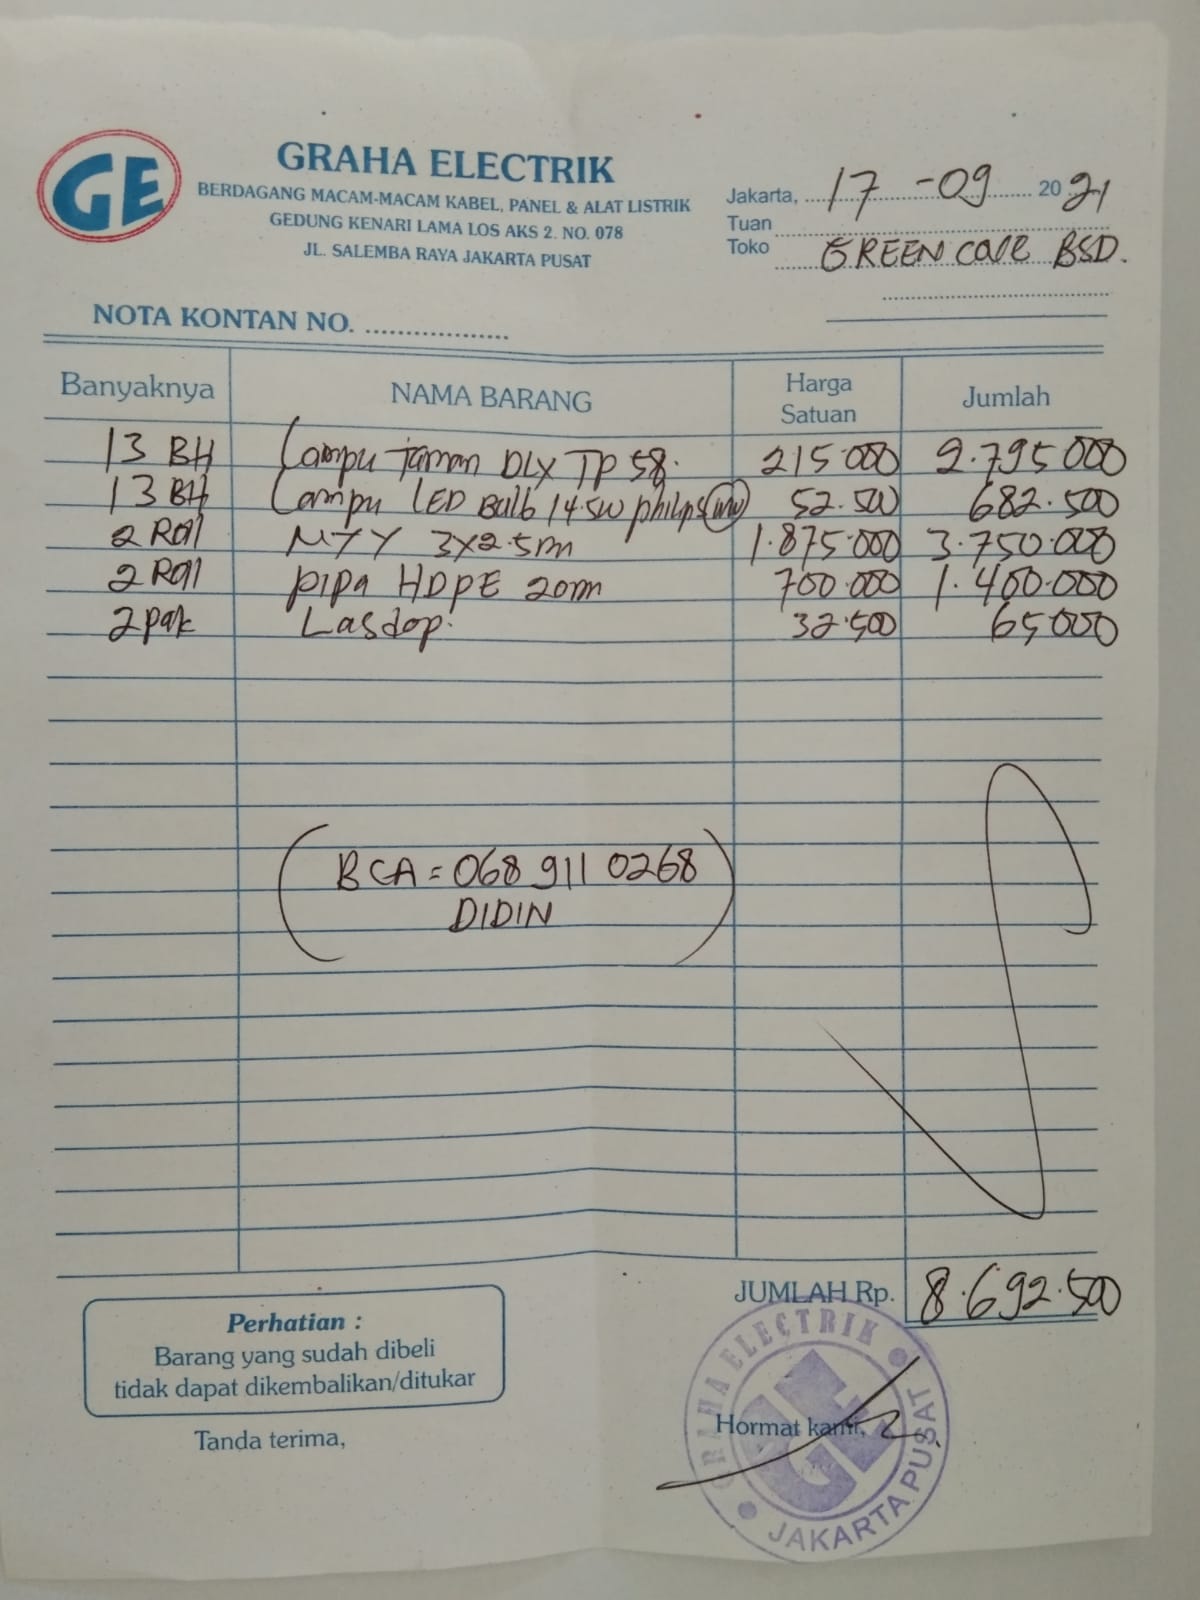 GE
GRAHA ELECTRIK
BERDAGANG MACAM-MACAM KABEL, PANEL & ALAT LISTRIK
GEDUNG KENARI LAMA LOS AKS 2. NO. 078
JL. SALEMBA RAYA JAKARTA PUSAT
Jakarta, 17 -09 2021
Tuan
Toko GREEN COVE BSD.
NOTA KONTAN NO. ..................
Banyaknya NAMA BARANG Harga Satuan Jumlah
13 BH Lampu Taman DLX TP 58. 215 000 2.795 000
13 BH Lampu LED Bulb 14.5W philips (WW) 52.500 682.500
2 Roll NYY 3x2.5m 1.875.000 3.750.000
2 Roll pipa HDPE 20m 700.000 1.400.000
2 pak Lasdop. 32.500 65000
(BCA = 068 911 0268
DIDIN)
JUMLAH Rp. 8.692.500
Perhatian :
Barang yang sudah dibeli
tidak dapat dikembalikan/ditukar
Tanda terima,
Hormat kami,
GRAHA ELECTRIK
GE
JAKARTA PUSAT